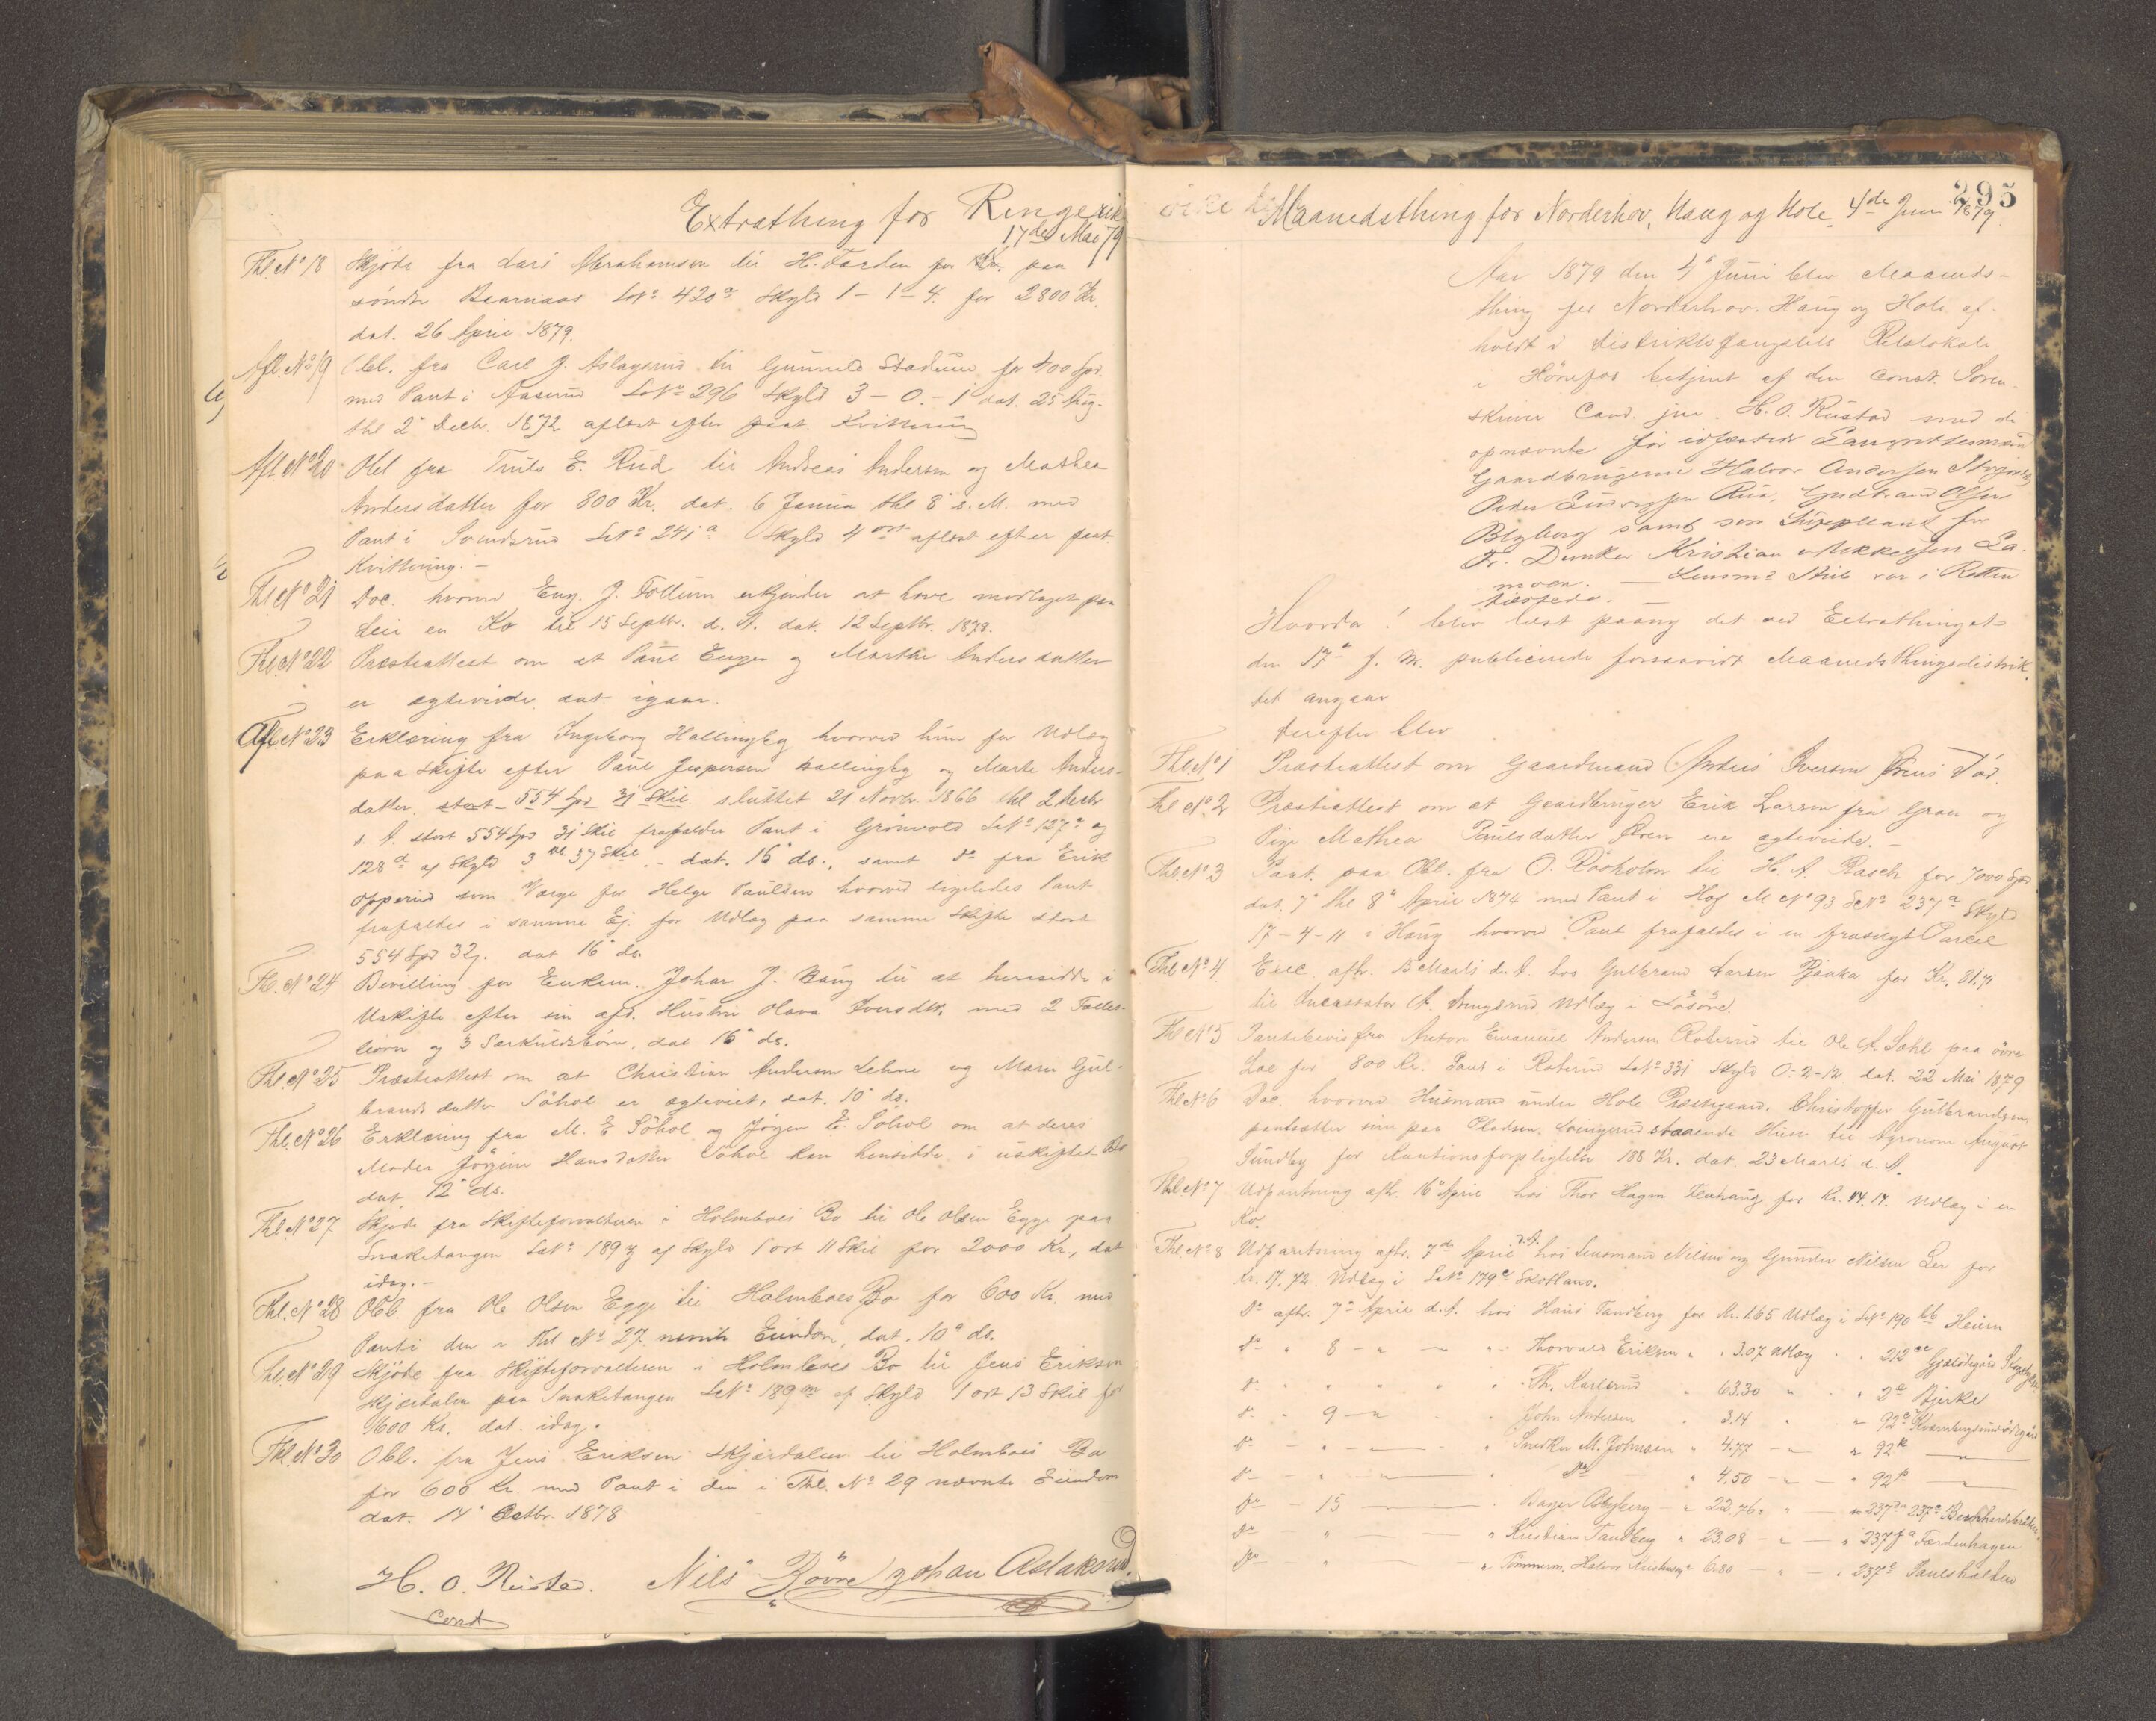 Extrathing for Ringerike
17de Mai 79
Thl. No 18 Skjöde fra Lars Abrahamsen til H. Farden for paa
söndre Baarnaas LNo 420a Skyld 1-1-4. for 2800 Kr.
dat. 26 April 1879.
Afl. No 19 Obl. fra Carl J. Aslagsrud til Gunnild Stadum for 400 Spd.
med Pant i Aasrud LNo 296 Skyld 3-0-1 dat. 25 Aug.
thl 2 Decbr. 1872 aflæst efter paat. Kvittering
Afl. No 20 Obl fra Truls E. Rud til Andreas Andersen og Mathea
Andersdatter for 800 Kr. dat. 6 Januar thl 8 s. M. med
Pant i Svendsrud LNo 241a Skyld 4 ort aflæst efter paat.
Kvittering. -
Thl. No 21 Doc. hvorved Eng. J. Follum erkjender at have modtaget paa
Leie en Ko til 15 Septbr. d. A. dat. 12 Septbr. 1878.
Thl. No 22 Præsteattest om at Paul Enger og Marthe Andersdatter
er ægteviede dat. igaar.
Afl. No 23 Erklæring fra Ingeborg Hallingby hvorved hun for Udlæg
paa Skifte efter Paul Jespersen Hallingby og Marte Anders-
datter, stort 554 Spd 31 Skil sluttet 21 Novbr. 1866 thl 2 Decbr
s. A. stort 554 Spd 31 Skil frafalder Pant i Grönvold LNo 127a og
128a af Skyld 3 37 Skil. - dat. 16 ds., samt Do fra Erik
Opperud som Værge for Helge Paulsen hvorved ligeledes Pant
frafaldes i samme Ej. for Udlæg paa samme Skifte stort
554 Spd 32 j. dat 16 ds.
Thl. No 24 Bevilling for Enkem. Johan J. Haug til at hensidde i
Uskifte efter sin afd. Hustru Olava Iversdtr. med 2 Fælles-
börn og 3 Særkuldsbörn, dat 16 ds.
Thl. No 25 Præsteattest om at Christian Andersen Lehne og Maren Gul-
brandsdatter Söhol er ægteviet, dat. 10 ds.
Thl. No 26 Erklæring fra M. E. Söhol og Jörgen E. Söhol om at deres
Moder Jörgine Hansdatter Söhol kan hensidde i uskiftet Bo
dat 12 ds.
Thl. No 27 Skjöde fra Skifteforvalteren i Holmboes Bo til Ole Olsen Egge paa
Snaketangen LNo 189 z af Skyld 1 ort 11 Skil for 2000 Kr., dat
idag. -
Thl. No 28 Obl. fra Ole Olsen Egge til Holmboes Bo for 600 Kr. med
Pant i den i Thl No 27 nævnte Eiendom, dat. 10 ds.
Thl. No 29 Skjöde fra Skifteforvalteren i Holmboes Bo til Jens Eriksen
Skjærdalen paa Snaketangen LNo 189 m af Skyld 1 ort 13 Skil for
1600 Kr. dat. idag.
Thl. No 30 Obl. fra Jens Eriksen Skjærdalen til Holmboes Bo
for 600 Kr. med Pant i den i Thl. No 29 nævnte Eiendom
dat. 14 Octbr. 1878
H. O. Rustad. Nils Rövre Johan Aslaksrud.
Const
295
Maanedsthing for Norderhov, Haug og Hole, 4de Juni 1879.
Aar 1879 den 4 Juni blev Maaneds-
thing for Norderhov. Haug og Hole af-
holdt i Distriktsfængslets Retslokale
i Hönefos betjent af den const. Soren-
skriver Cand. jur. H. O. Rustad med de
opnævnte før edfæstede Laugrettesmænd
Gaardbrugerne Halvor Andersen
Peder Ludvigsen Rua, Gudbrand Olsen
Blyberg samt som Suppleant for
Fr. Dunker Kristian Mikkelsen La-
moen. - Lensmd Stub var i Retten
tilstede. -
Hvorda! blev læst paany det ved Extrathinget
den 17 f. M. publicerede forsaavidt Maanedsthingsdistrik-
tet angaar
Derefter blev
Thl. No 1 Præsteattest om Gaardmand Anders Iversen Öens Död.
Thl No 2 Præsteattest om at Gaardbruger Erik Larsen fra Gran og
Pige Mathea Paulsdatter Öen ere ægteviede. -
Thl. No 3 Paat. paa Obl. fra O. Rösholm til H. A. Rasch for 7000 Spd
dat. 7 thl 8 April 1874 med Pant i Hof M No 93 LNo 237a Skyld
17-4-11 i Haug hvorved Pant frafaldes i en frasolgt Parcel
Thl. No 4 Exec. afh. 15 Marts d. A. hos Gulbrand Larsen Bjönka for Kr. 81.71
til Incassator A. Udlæg i Lösöre.
Thl No 5 Pantebevis fra Anton Emanuel Andersen Roterud til Ole A. Dahl paa övre
Lae for 800 Kr. Pant i Roterud LNo 331 Skyld 0-2-12 dat. 22 Mai 1879
Thl. No 6 Doc. hvorved Husmand under Hole Præstegaard, Christopher Gulbrandsen
pantsætter sine paa Pladsen Svingerud staaende Huse til Agronom August
Sundby for Kautionsforpligtelse 188 Kr. dat. 23 Marts d. A.
Thl. No 7 Udpantning afh. 16 April hos Thor Hagen for Kr. 44.14. Udlæg i en
Ko.
Thl. No 8 Udpantning afh. 7de April d. A. hos Lensmand Nilsen og Gunder Nilsen Ler for
Kr. 17.72. Udlæg i LNo 179c Skotland.
Do afh. 7 April d. A. hos Hans Tandberg for Kr. 1.65 Udlæg i LNo 190 bb Heiern
Do " 8 - " - " Thorvald Eriksen " " 3.07 Udlæg " " 212
Do " " " " " Th. Karlsrud " 63.30 " " " 2a Bjerke
Do " 9 - " " John Andersen " 3.14 " " 92
Do - " - " Snedker M. Johnsen " 4.77 - " " 92k - " -
Do - " - " " Do " 4.50 - " - " 92 - " -
Do - 15 - " Bager Blyberg - " 22.76 " " - " 237 237
Do " - " Kristian Tandberg " 23.08 - " - " 237 Færdenhagen
Do " - " Tömmerm. Halvor " 6.80 - " - " 237 Paulshalden